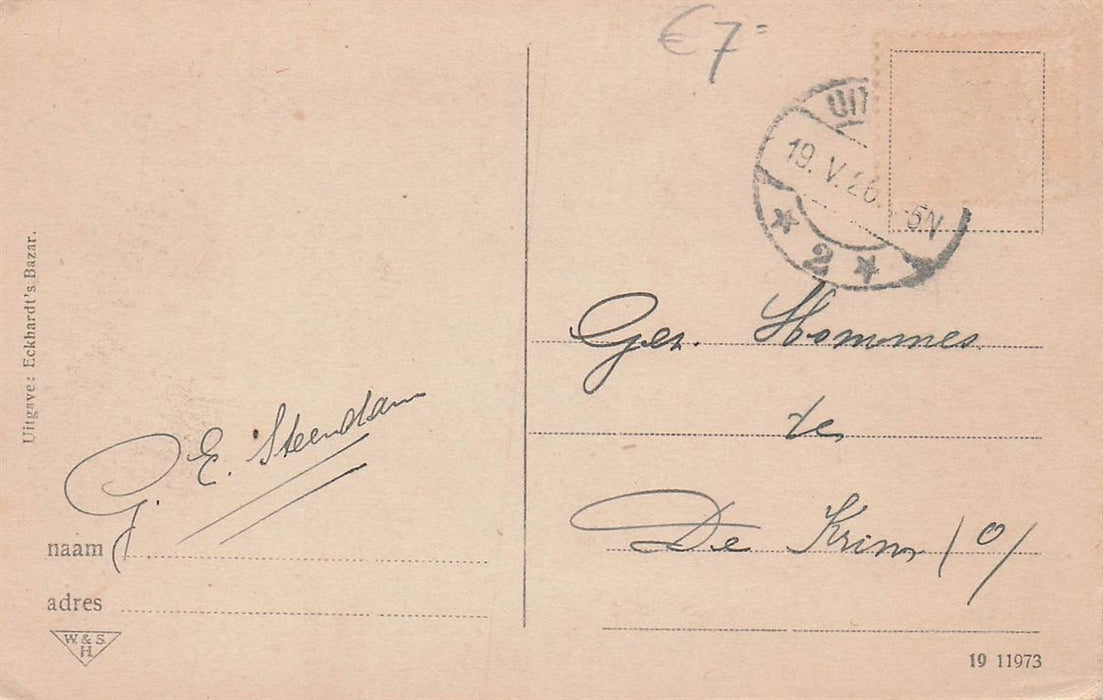 €7=
UIT
19.V.26. -5N
* 2 *
Uitgave: Eckhardt's Bazar.
Ger. Hommes
te
De Krim (O)
G. E. Steendam
naam
adres
W. & S.
H.
19 11973